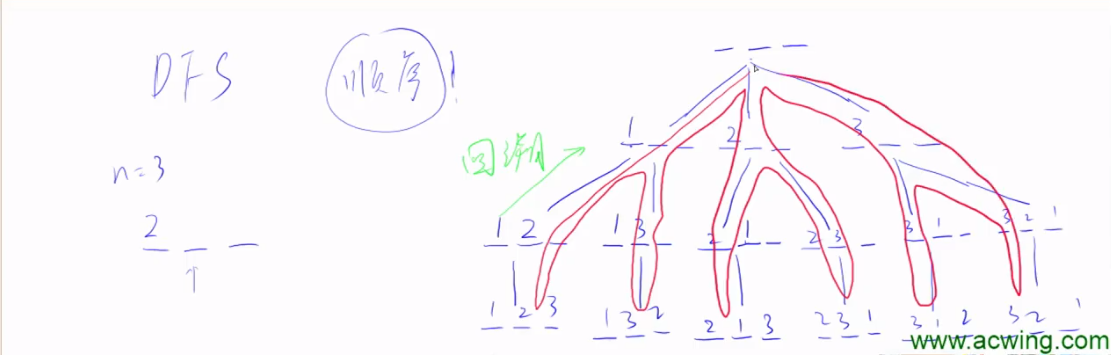 DFS 顺序！
n=3
2 _ _
↑
_ _ _
1 _ _ 2 _ _ 3 _ _
回溯
1 2 _ 1 3 _ 2 1 _ 2 3 _ 3 1 _ 3 2 1
1 2 3 1 3 2 2 1 3 2 3 1 3 1 2 3 2 1
www.acwing.com